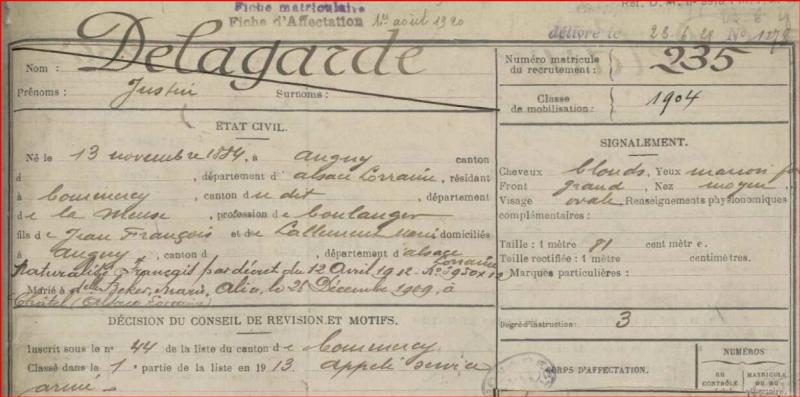 Fiche matriculaire
Fiche d'Affectation 1er août 1920
délivré le 23-6-28 No
Delagarde
Nom :
Prénoms : Justin Surnoms :
Numéro matricule du recrutement : 235
Classe de mobilisation : 1904
ÉTAT CIVIL.
Né le 13 novembre 1884, à Augny canton
d , département d'alsace Lorraine, résidant
à Commercy, canton du dit, département
de la Meuse, profession de boulanger
fils de Jean François et de Lallement Marie domiciliés
à Augny, canton d , département d'alsace Lorraine
Naturalisé Français par décret du 12 Avril 1912 - No
Marié à Marie, le 25 Décembre 1909, à
Châtel (Alsace Lorraine)
DÉCISION DU CONSEIL DE REVISION ET MOTIFS.
Inscrit sous le no 44 de la liste du canton de Commercy
Classé dans la 1 partie de la liste en 1913. appelé service
armé.
SIGNALEMENT.
Cheveux blonds, Yeux marron
Front grand, Nez moyen
Visage ovale Renseignements physionomiques
complémentaires :
Taille : 1 mètre 81 centimètre.
Taille rectifiée : 1 mètre centimètres.
Marques particulières :
Degré d'instruction : 3
CORPS D'AFFECTATION.
NUMÉROS
AU CONTRÔLE
MATRICULE OU AU